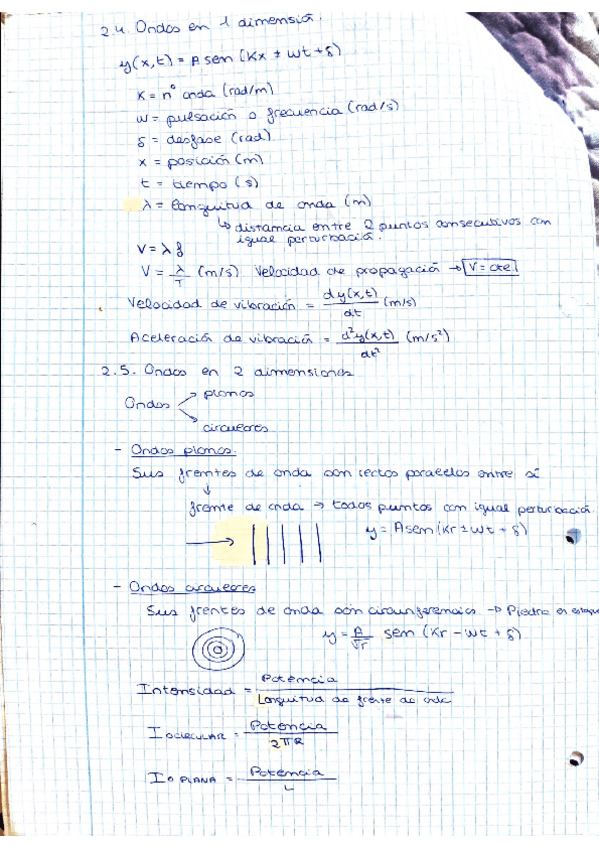 2.4. Ondas en 1 dimensión.
y(x,t) = A sen (Kx ± wt + δ)
K = nº onda (rad/m)
w = pulsación o frecuencia (rad/s)
δ = desfase (rad)
x = posición (m)
t = tiempo (s)
λ = longuitud de onda (m)
↳ distancia entre 2 puntos consecutivos con
igual perturbación.
V = λ f
V = λ/T (m/s) Velocidad de propagación → V = cte
Velocidad de vibración = dy(x,t)/dt (m/s)
Aceleración de vibración = d²y(x,t)/dt² (m/s²)
2.5. Ondas en 2 dimensiones
Ondas
planas
circulares
- Ondas planas.
Sus frentes de onda son rectas paralelas entre sí
↓
frente de onda → todos puntos con igual perturbación.
y = A sen (Kr ± wt + δ)
- Ondas circulares
Sus frentes de onda son circunferencias → Piedra en
y = A/√r sen (Kr - wt + δ)
Intensidad = Potencia / Longuitud de frente de onda
I o CIRCULAR = Potencia / 2πR
I o PLANA = Potencia / L